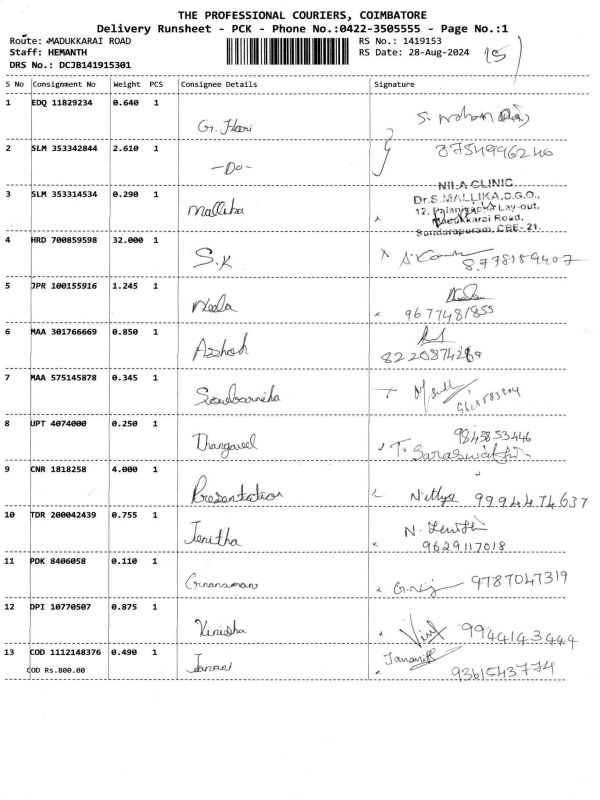 THE PROFESSIONAL COURIERS, COIMBATORE
Delivery Runsheet - PCK - Phone No.:0422-3505555 - Page No.:1
Route: MADUKKARAI ROAD RS No.: 1419153
Staff: HEMANTH RS Date: 28-Aug-2024
DRS No.: DCJB141915301
S No Consignment No Weight PCS Consignee Details Signature
1 EDQ 11829234 0.640 1
G. Hari
2 SLM 353342844 2.610 1 8754996246
-Do-
NILA CLINIC
3 SLM 353314534 0.290 1 Dr.S.MALLIKA,D.G.O.,
Mallika 12, Palaniyappa Lay-out,
Madukkarai Road,
Sundarapuram, CBE- 21.
4 HRD 700859598 32.000 1
S.K 8778189407
5 JPR 100155916 1.245 1
Neela 9677481855
6 MAA 301766669 0.850 1
Ashok
7 MAA 575145878 0.345 1
8 UPT 4074000 0.250 1 9843853446
Thangavel T. Saraswathi
9 CNR 1818258 4.000 1
Presentation Nithya 9994474637
10 TDR 200042439 0.755 1
Jenitha 9629117018
11 PDK 8406058 0.110 1
9787047319
12 DPI 10770507 0.875 1
Vinisha 9944143444
13 COD 1112148376 0.490 1
COD Rs.800.00 Janani 9361543774